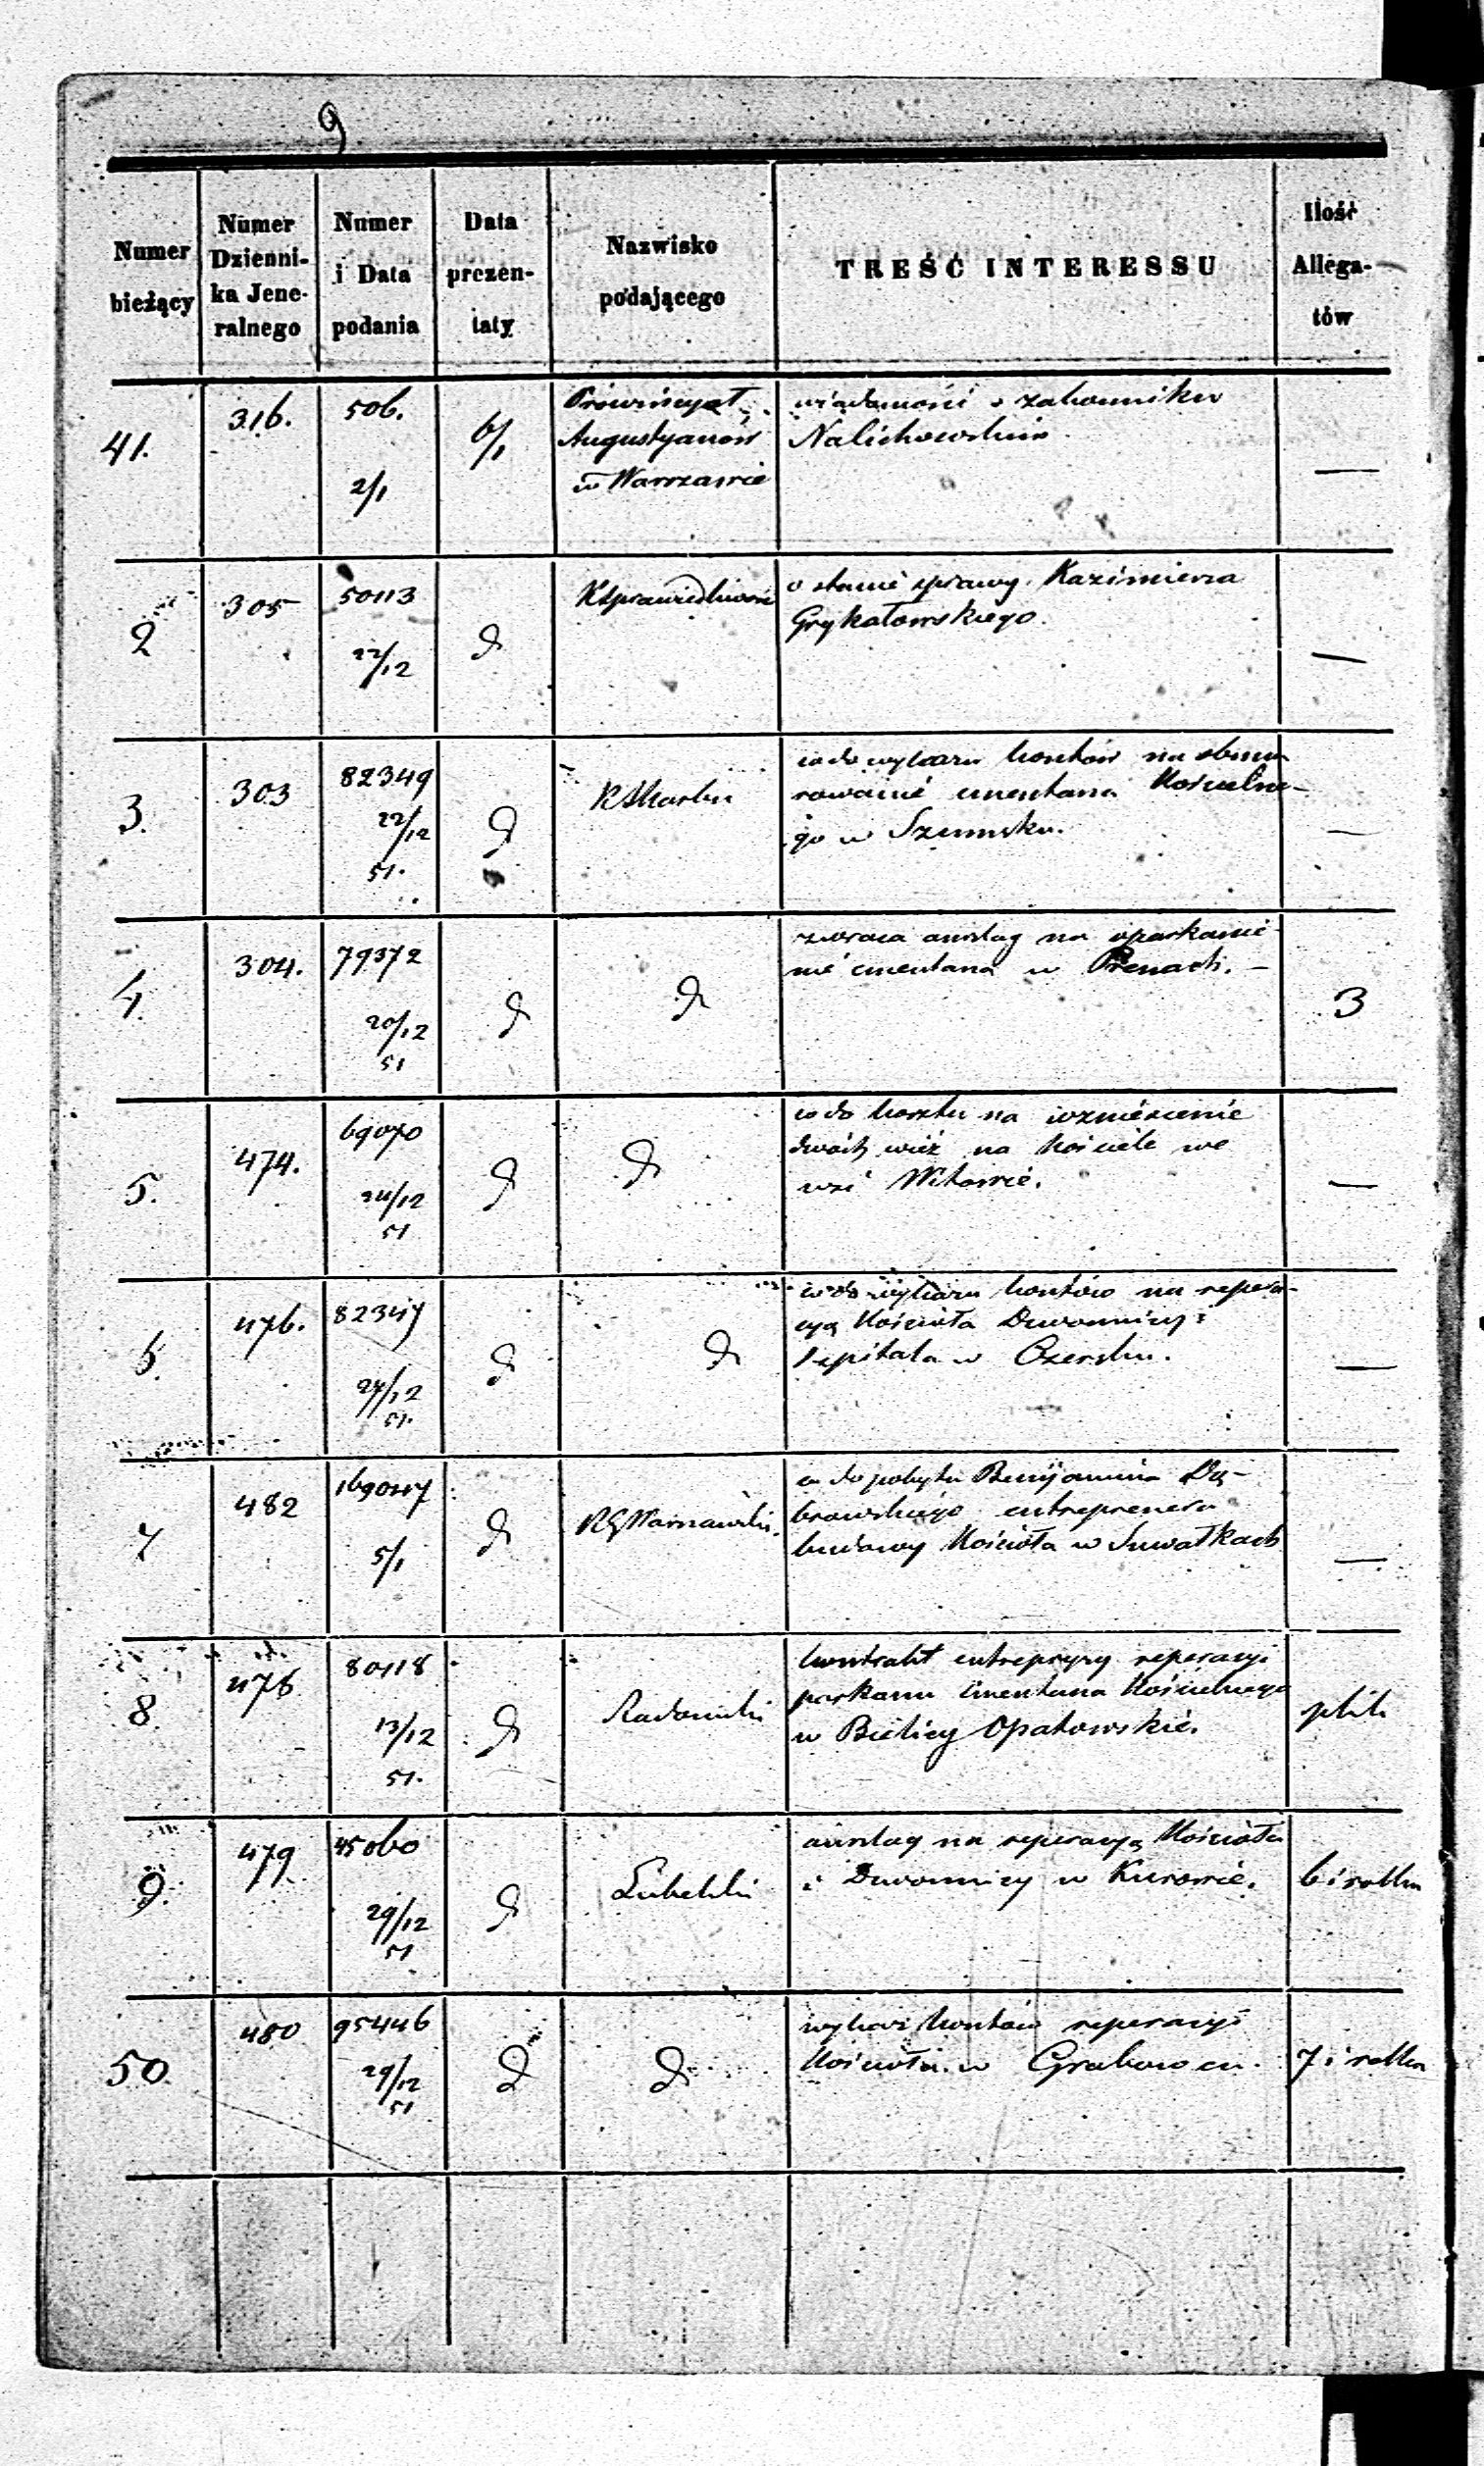 9
Numer
bieżący
Numer
Dzienni-
ka Jene-
ralnego
Numer
i Data
podania
Data
prezen-
taty
Nazwisko
podającego
TREŚĆ INTERESSU
Ilość
Allega-
tów
41.
316.
506.
2/1
6/1
Prowincyał
Augustyanów
w Warszawie
wiadomość o zakonniku
Nalichowskim
—
2
305
50113
22/12
KSprawiedliwości
o stanie sprawy Kazimierza
Grykałowskiego.
—
3.
303
82349
22/12
51.
KSkarbu
co do wykazu kosztów na obmu-
rowanie cmentarza Kościelne-
go w Szumsku.
—
4.
304.
79372
20/12
51
zwraca anszlag na oparkanie-
nie cmentarza w Prenach. —
3
5.
474.
69070
24/12
51
co do kosztu na wzniesienie
dwóch wież na kościele we
wsi Witowie.
—
6.
476.
82347
24/12
51.
co do wykazu kosztów na repera-
cyą Kościoła Dzwonnicy i
Szpitala w Czersku.
—
7
482
169047
5/1
RGWarszawski.
co do pobytu Benijamina Dą-
browskiego entreprenera
budowy Kościoła w Suwałkach
—
8.
478
80118
13/12
51.
Radomski
kontrakt entrepryzy reperacyi
parkanu cmentarza Kościelnego
w Bielicy Opatowskié.
plik
9.
479
45060
29/12
51
Lubelski
anszlag na reperacyą Kościoła
i Dzwonnicy w Kurowie.
6 i
50.
480
95446
29/12
51
wykaz kosztów reperacyi
Kościoła w Grabowcu.
7 i